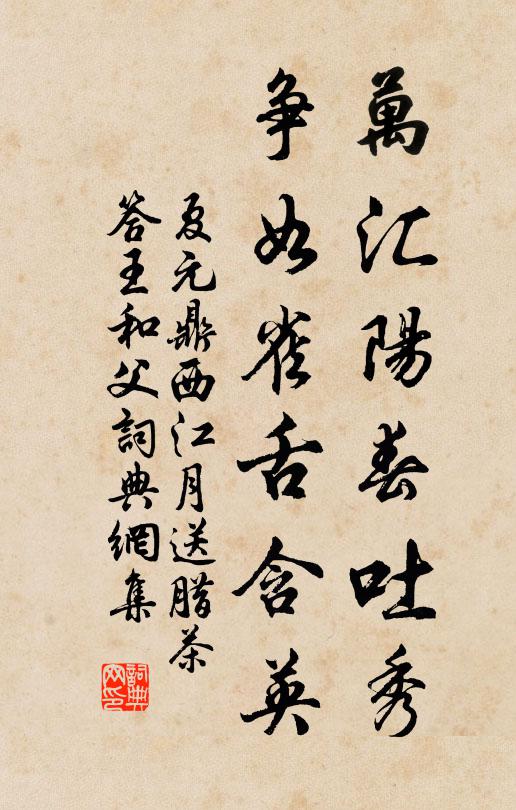 萬汇陽春吐秀
争如雀舌含英
夏元鼎西江月送腊茶
答王和父詞典網集
詞典網印